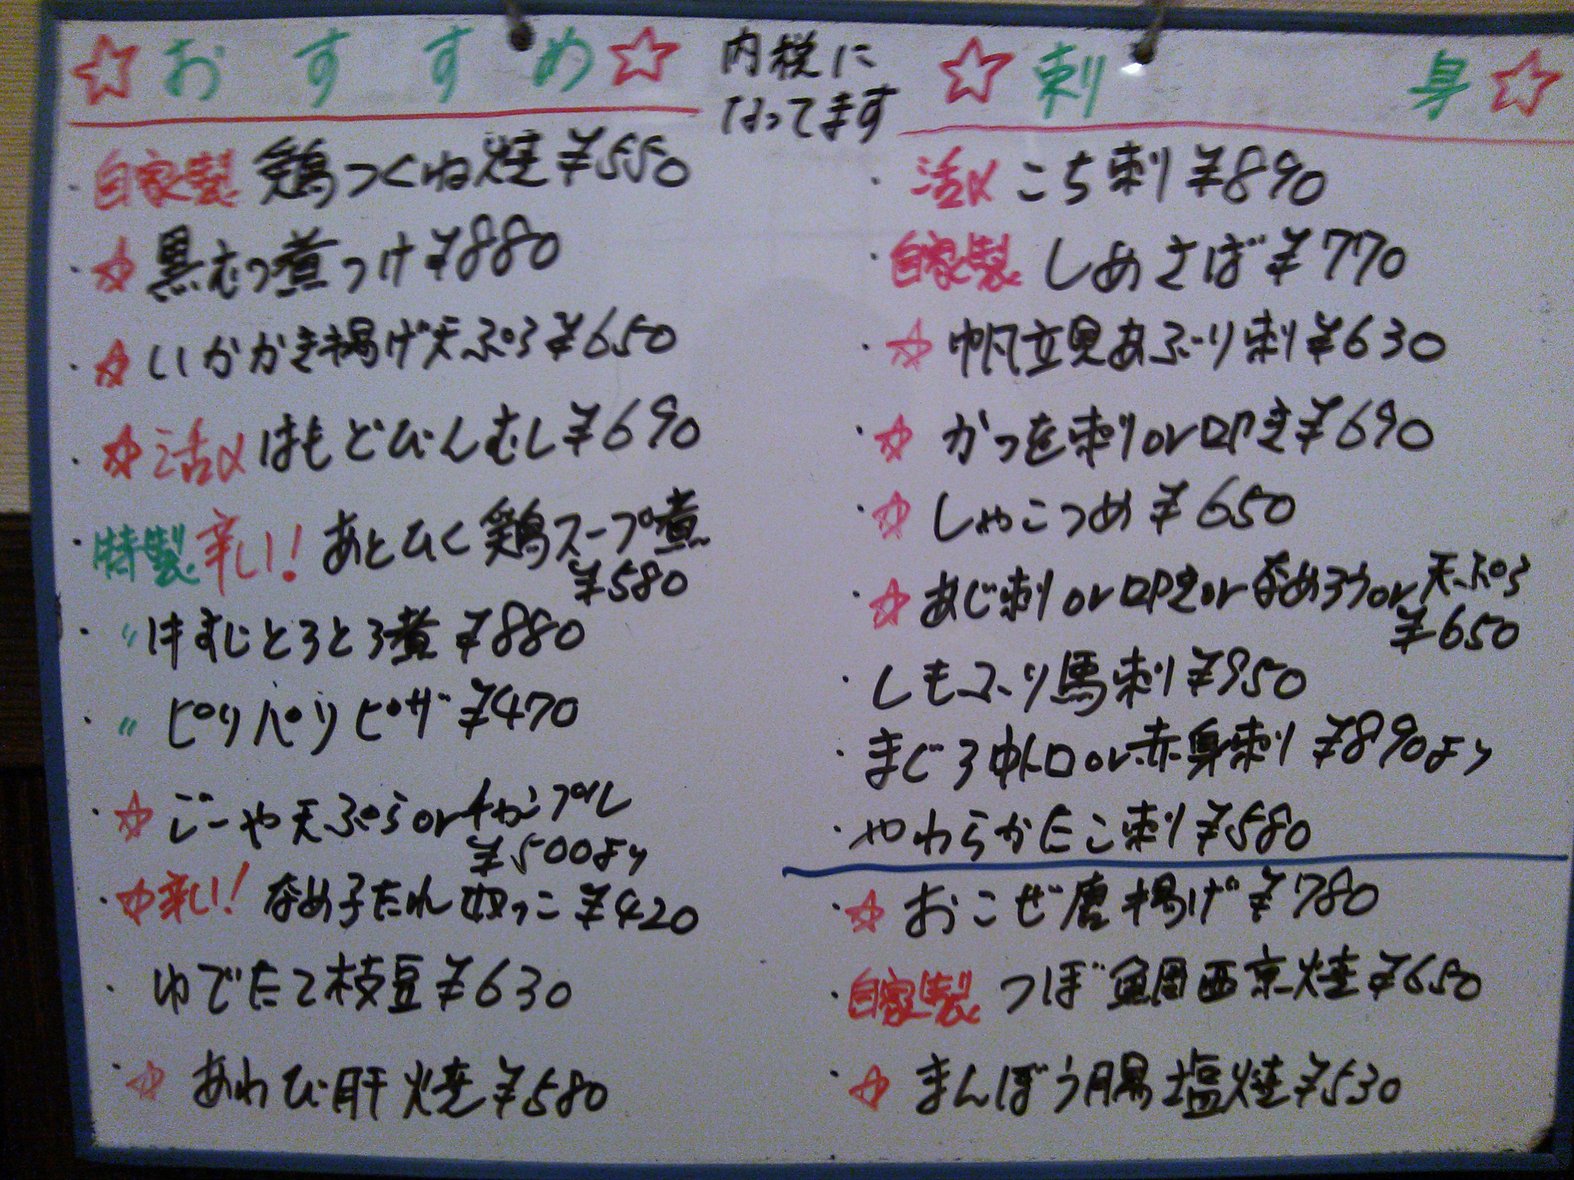 ☆おすすめ☆
内税に
なってます
・自家製 鶏つくね焼¥550
・☆黒むつ煮つけ¥880
・☆いかかき揚げ天ぷら¥650
・☆活〆はもどびんむし¥690
・特製辛い!あとひく鶏スープ煮
¥580
・〃牛すじとろとろ煮¥880
・〃ピリパリピザ¥470
・☆ごーや天ぷらorチャンプル
¥500より
・☆辛い!なめ子たれ奴っこ¥420
・ゆでたて枝豆¥630
・☆あわび肝焼¥580
☆刺身☆
・活〆こち刺¥890
・自家製しめさば¥770
・☆帆立貝あぶり刺¥630
・☆かつを刺or叩き¥690
・☆しゃこつめ¥650
・☆あじ刺or叩きorなめろうor天ぷら
¥650
・しもふり馬刺¥950
・まぐろ中トロor赤身刺¥890より
・やわらかたこ刺¥580
・☆おこぜ唐揚げ¥780
・自家製つぼ鯛西京焼¥650
・☆まんぼう腸塩焼¥530